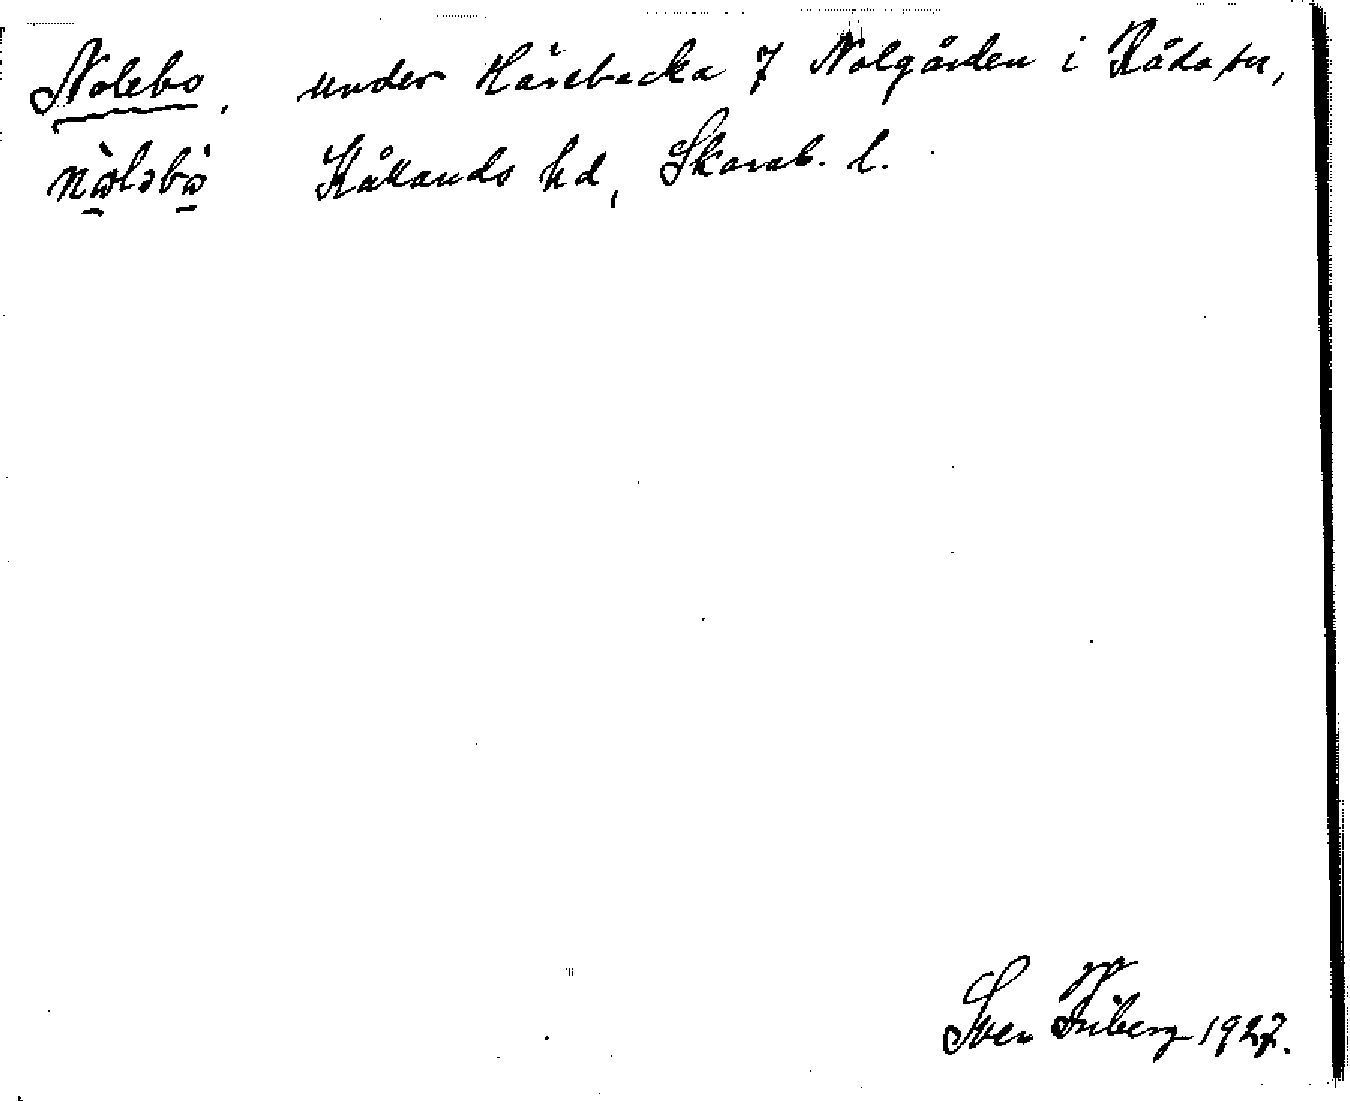 Nolebo, under Häsebacka 7 Nolgården i Råda sn,
nòləbò Kållands hd, Skarab. l.
Sven Friberg 1927.